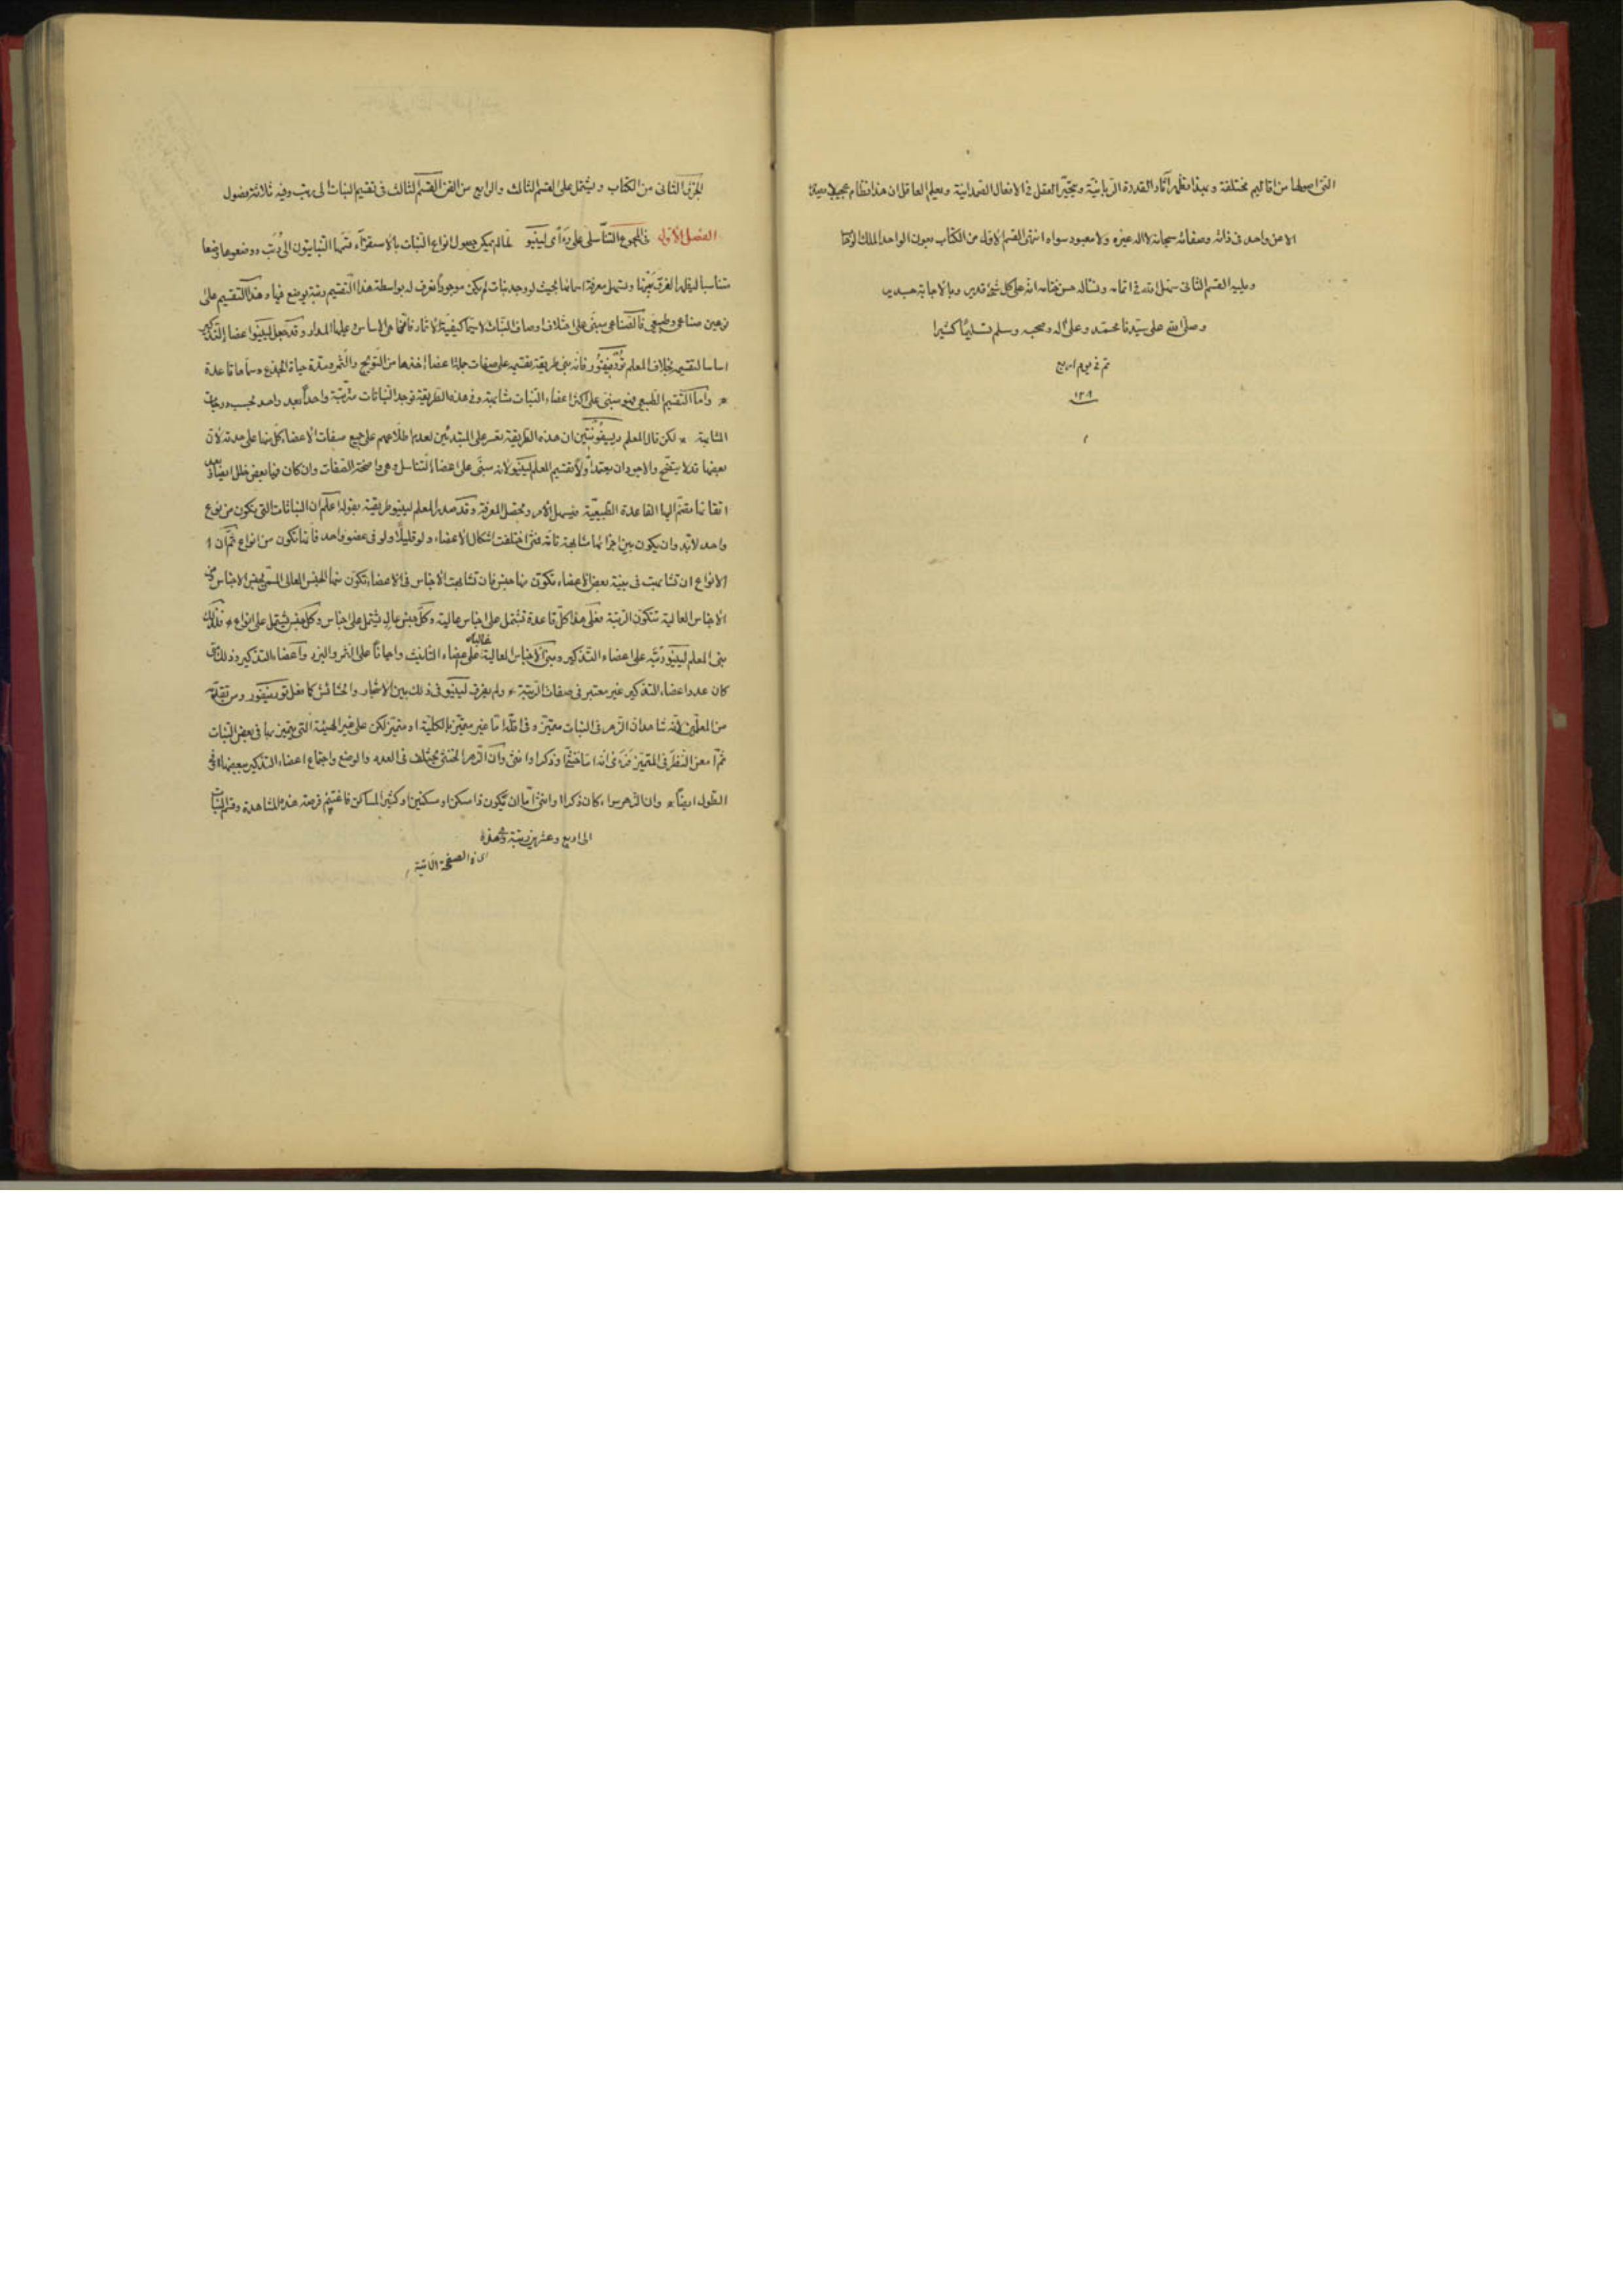 التى اصولها من اقاليم مختلفة وبهذا تظهر آثار القدرة الربانيّة ويتحيّر العقل فى الافعال الصمدانية ويعلم العاقل ان هذا نظام عجيب لا يصدر
الا من واحد فى ذاته وصفاته سبحانه لا اله غيره ولا معبود سواه انتهى القسم الاول من الكتاب بعون الواحد الملك الوهّاب
ويليه القسم الثانى سهل الله فى اتمامه ونساله حسن ختامه انه على كل شئ قدير وبالاجابة جدير
وصلّى الله على سيّدنا محمّد وعلى آله وصحبه وسلم تسليمًا كثيرا
تم فى يوم اربع
الجزئ الثانى من الكتاب ويشتمل على القسم الثالث والرابع من الفن القسم الثالث فى تقسيم النبات الى رتب وفيه ثلاثة فصول
الفصل الاول فى المجموع التناسلى على رَءآى لينيو لما لم يمكن حصول انواع النبات بالاستقرآء قسّمها النباتيّون الى رُتَب ووضعوها وضعا
متناسبا ليظهر الفرق بينها ويسهل معرفة اسمائها بحيث لو وجد نبات لم يكن موجودًا تعرف له بواسطة هذا التقسيم رتبة يوضع فيها وهذا التقسيم على
نوعين صناعى وطبيعى فالصناعى مبنى على اختلاف اوصاف النبات لاسيّما كيفيّة الاثمار فانّها هى الاساس وعليها المدار وقد جعل لينيو اعضاء التذكير
اساسا لتقسيمه بخلاف المعلم تُورْنِيفُور فانّه بنى طريقة تقسيمه على صفات جملة اعضاء اخذها من التويج والثمر ومدّة حياة الجذع وسمّاها قاعدة
* وامّا التقسيم الطبيعى فهو مبنى على اكثر اعضاء النبات مشابهة وفى هذه الطريقة توجد النباتات مترتّبة واحدًا بعد واحد بحسب درجات
المشابهة * لكن قال المعلم ان هذه الطريقة تعسر على المبتدئين لعدم اطلاعهم على جميع صفات الاعضاء كلّ منها على حدته لان
بعضها قد لا يتضح والاجود ان يعتمد اوّلا تقسيم المعلم لينيو لانه مبنى على اعضاء التناسل وهى واضحة الصفات وان كان فيها بعض خلل ايضا وبعد
اتقانها تضمّ اليها القاعدة الطبيعيّة فيسهل الامر وتحصل المعرفة وقد صدر المعلم لينيو طريقته بقوله اعلم ان النباتات التى يكون من نوع
واحد لابدّ وان يكون بين اجزائها مشابهة تامّة فمتى اختلفت اشكال الاعضاء ولو قليلًا ولو فى عضو واحد فانها تكون من انواع ثمّ ان
الانواع ان تشابهت فى بنية بعض الاعضاء تكوّن منها جنس فان تشابهت الاجناس فى الاعضاء تكوّن منها الجنس العالى المسمّى بجنس الاجناس ومن
الاجناس العالية تتكوّن الرتبة فعلى هذا كلّ قاعدة تشتمل على اجناس عالية وكل جنس عالٍ يشتمل على اجناس وكل جنس يشتمل على انواع * فلذلك
بنى المعلم لينيو رُتَبه على اعضاء التذكير وبنى الاجناس العالية غالبا على اعضاء التانيث واحيانًا على الثمر والبزر واعضاء التذكير وذلك ان
كان عدد اعضاء التذكير غير معتبر فى صفات الرتبة * ولم يفرق لينيو فى ذلك بين الاشجار والحشائش كما فعل تورنيفور ومن تقدّمه
من المعلّمين لانّه شاهد ان الزهر فى النبات متميّز وفى اقلّه امّا غير متميّز بالكليّة او متميّز لكن على غير الهيئة التى يتميز بها فى بعض النبات
ثمّ امعن النظر فى المتميّز فرَءَى انه امّا خنثى او ذكر او انثى وان الزهر الخنثى يختلف فى العدد والوضع واجتماع اعضاء التذكير ببعضها وفى
الطول ايضًا * وان الزهر سواء كان ذكرا او انثى امّا ان يكون ذا مسكن او مسكنين او كثير المساكن فاغتنم فرصة هذه المشاهدة وقسم النبات
الى اربع وعشرين رتبة وهى هذه
الصفحة الاتية